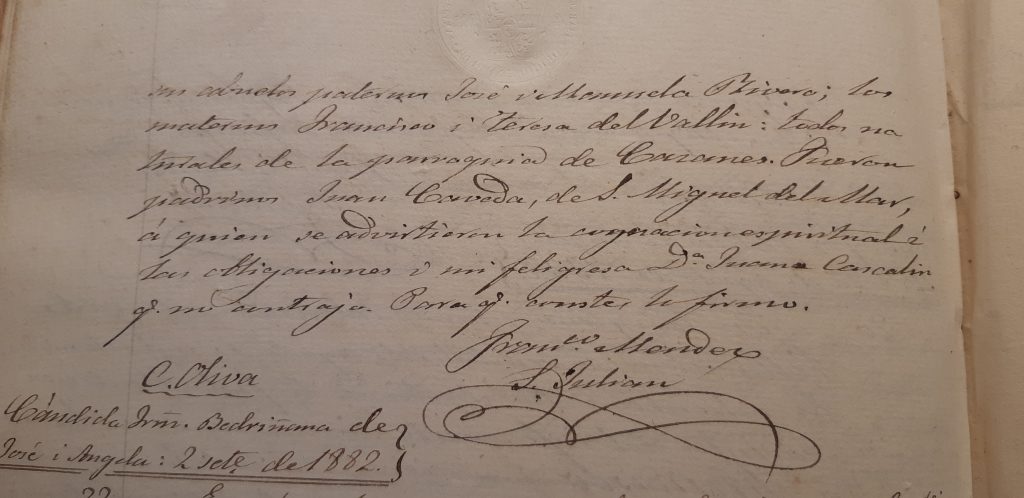 sus abuelos paternos José i Manuela Rivero; los
maternos Francisco i Teresa del Vallin: todos na
turales de la parroquia de Cazanes. Fueron
padrinos Juan Caveda, de S. Miguel del Mar,
á quien se advirtieron la cognacion espiritual i
las obligaciones i mi feligresa D.ª Juana Cascalin
q. no contrajo. Para q. conste, lo firmo.
Fran.co Mendez
S. Julian
C. Oliva
Cándida Irm. Bedriñana de
José i Angela: 2 sete de 1882.
22